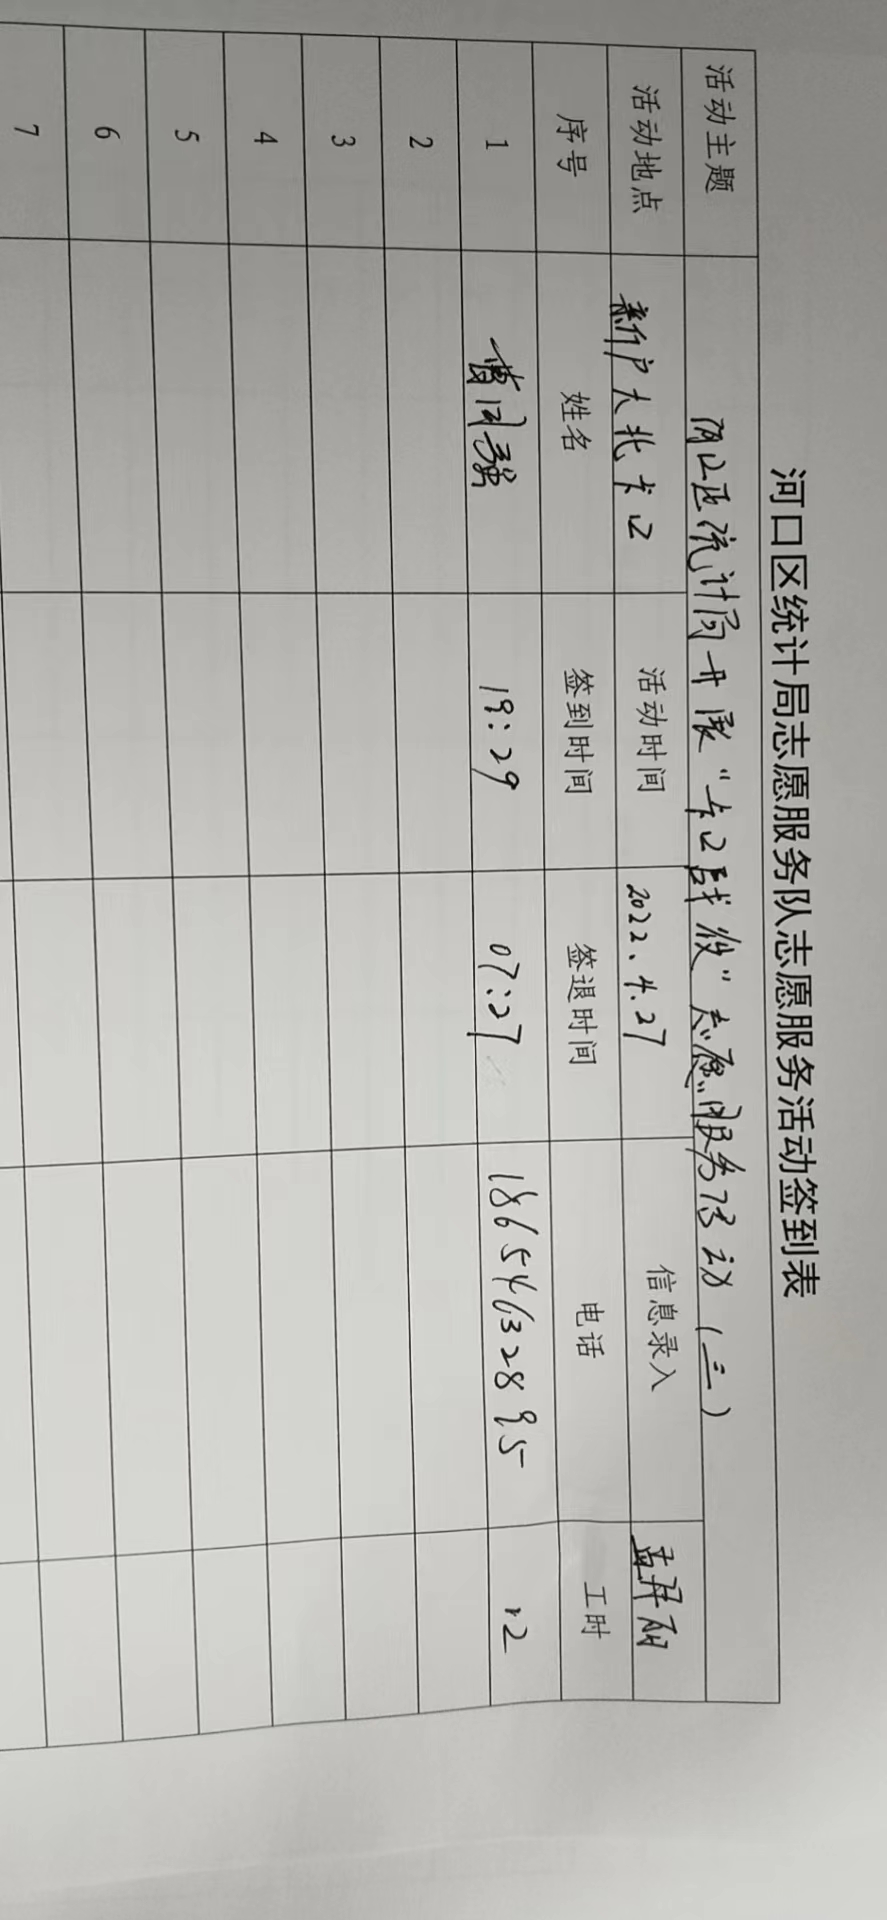 河口区统计局志愿服务队志愿服务活动签到表
活动主题 河口区统计局开展“卡口战役”志愿服务活动（三）
活动地点 新户大北卡口 活动时间 2022.4.27 信息录入
序号 姓名 签到时间 签退时间 电话 工时
1 19:29 07:27 18654632895 12
2
3
4
5
6
7